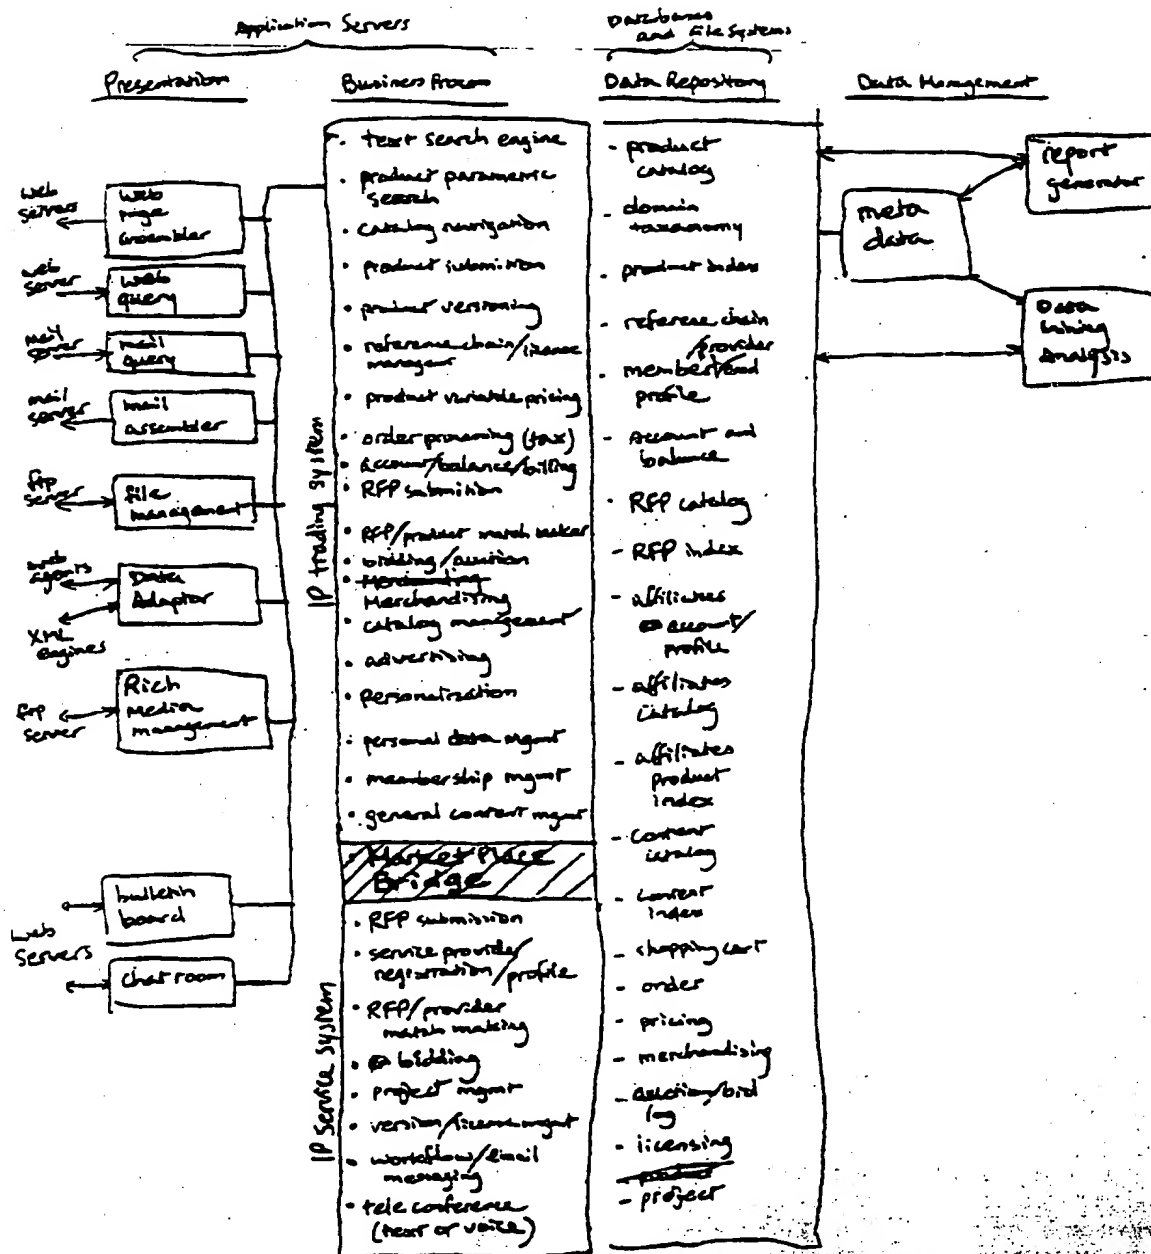 Application Servers
Databases
and File Systems
Presentation
Business Process
Data Repository
Data Management
web
servers
web
page
assembler
web
server
web
query
mail
server
mail
query
mail
server
mail
assembler
ftp
server
file
management
web
agents
Data
Adaptor
XML
engines
Rich
Media
management
ftp
server
bulletin
board
web
servers
chat room
IP trading system
• text search engine
• product parametric
search
• catalog navigation
• product submition
• product versioning
• reference chain/license
manager
• product variable pricing
• order processing (tax)
• account/balance/billing
• RFP submition
• RFP/product match maker
• bidding/auction
• Merchandising
• catalog management
• advertising
• personalization
• personal data mgmt
• membership mgmt
• general content mgmt
• Market Place
Bridge
IP service system
• RFP submission
• service provider
registration/profile
• RFP/provider
match making
• bidding
• project mgmt
• version/license mgmt
• workflow/email
messaging
• tele conference
(text or voice)
- product
catalog
- domain
taxanomy
- product index
- reference chain
/provider
- member/
profile
- Account and
balance
- RFP catalog
- RFP index
- affiliates
account/
profile
- affiliates
catalog
- affiliates
product
index
- Content
catalog
- content
index
- shopping cart
- order
- pricing
- merchandising
- auction/bid
log
- licensing
- project
meta
data
report
generator
Data
mining
Analysis